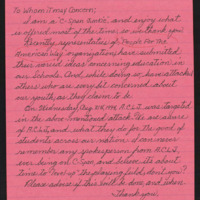 To Whom it may Concern;
I am a C-Span junkie, and enjoy what
is offered most of the time, so we thank you.
Recently representatives of People For The
American Way organization, have submitted
their varied ideas concerning education in
our Schools. And, while doing so, have attacked
others who are very [] concerned about
our youth, as they claim to be.
On Wednesday Aug. 1994 A.C.L.J. was targeted
in the above mentioned attack. We are aware
of A.C.L.J. and what they do for the good of
students across our nation. I can never
remember any spokesperson from A.C.L.J.
ever being on C-Span, and believe it's about
time to "level up the playing field," don't you?
Please advise if this could be done and when.
Thank you,